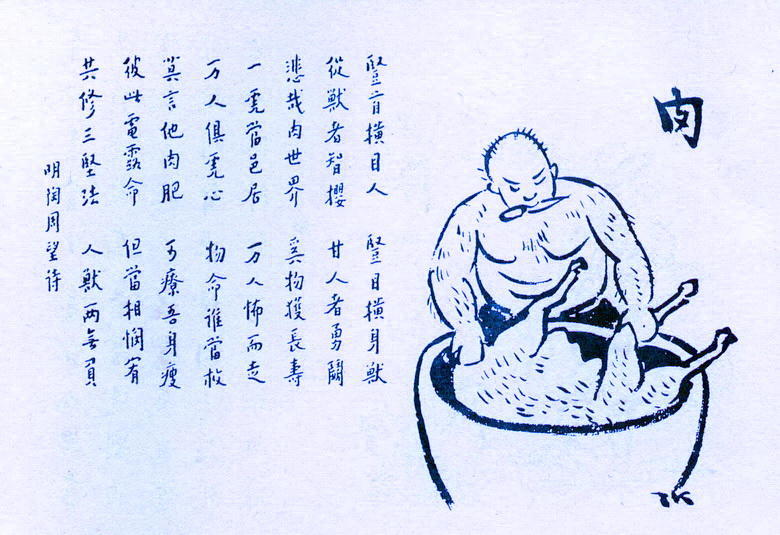 肉
豎首橫目人 豎目橫身獸
從獸者智攖 甘人者勇鬪
悲哉肉世界 奚物獲長壽
一虎當邑居 万人怖而走
万人俱虎心 物命誰當救
莫言他肉肥 可療吾身瘦
彼此電露命 但當相憫宥
共修三堅法 人獸兩無負
明陶周望詩
TK